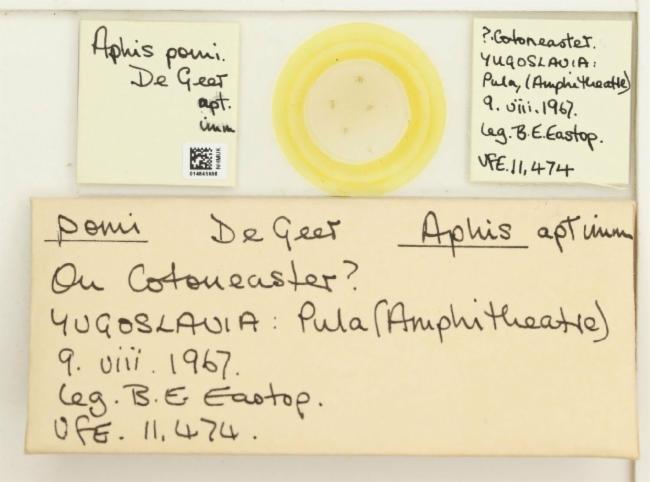 Aphis pomi.
De Geer
apt.
imm
NHMUK
?.Cotoneaster.
YUGOSLAVIA:
Pula, (Amphitheatre)
9. viii. 1967.
Leg. B.E. Eastop.
VFE. 11,474
pomi De Geer Aphis apt imm
On Cotoneaster?
YUGOSLAVIA: Pula (Amphitheatre)
9. viii. 1967.
Leg. B.E Eastop.
VFE. 11,474.